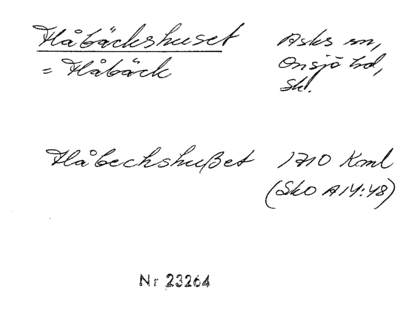 Håbäckshuset Asks sn,
= Håbäck Onsjö hd,
Sk.
Håbechshußet 1710 Kml
(Sk0 A14:48)
Nr 23264